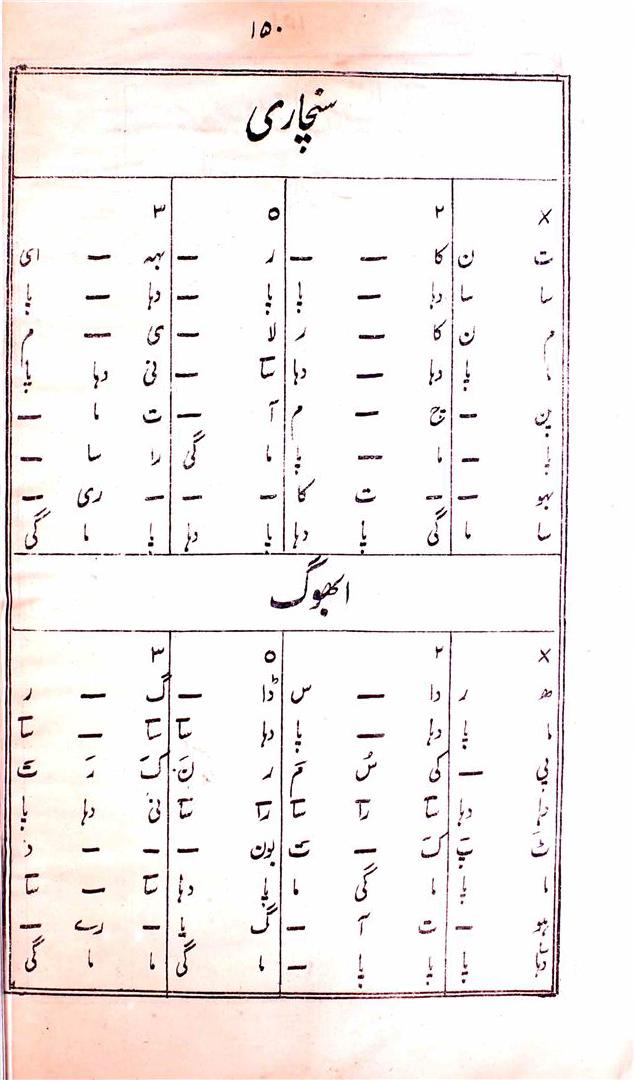 ١٥٠
سنچاری
× ٢ ٥ ٣
ت ن کا — — ر — بہہ — ای
سا سا دہا — پا پا — دہا — پا
م ن کا — ر لا — ی — م
ما پا دہا — دہا سا — نی دہا پا
پن — ج — م آ — ت ما —
پا — ما — پا ما گی را سا —
بہو — — ت کا — — — ری —
سا ما گی پا دہا پا دہا پا ما گی
ابھوگ
× ٢ ٥ ٣
ھ ر دا — س ڈا — گ — ر
ما پا دہا — پا دہا سا سا — سا
پی — کی س م ر ن ک ر ت
دہا سا را سا را سا نی دہا پا
ک — ت بون — — — د
ما پا ما گی ما پا دہا سا — سا
ہو — ت آ — گ پا — رے —
پا پا پا — ما گی ما ما گی